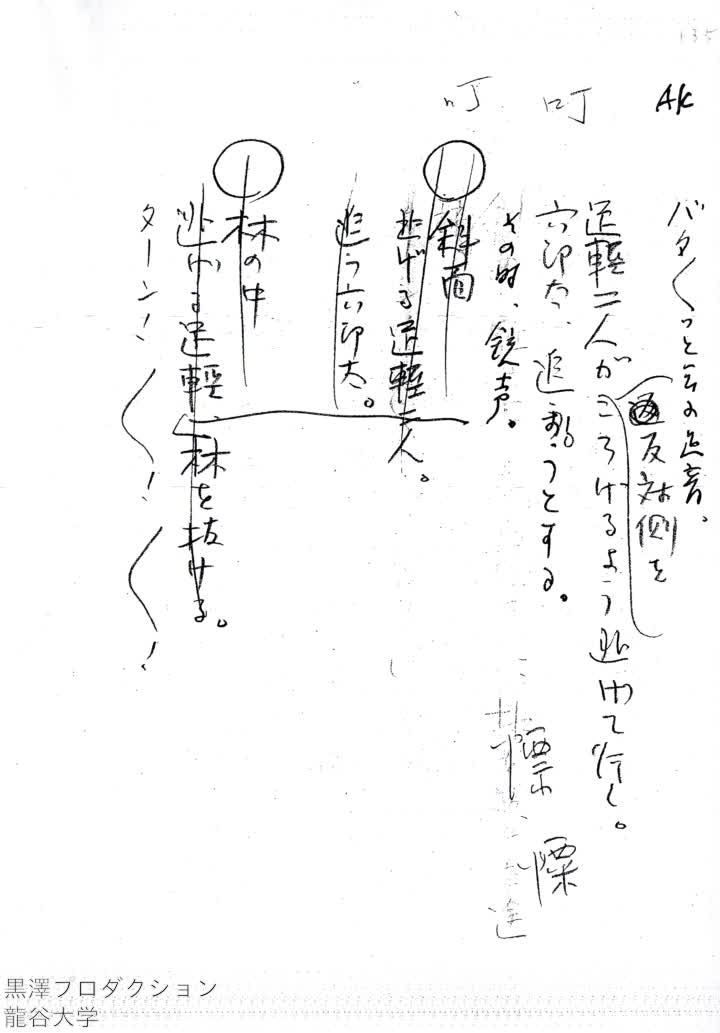 135
AK
叮
叮
バタ〱っと云う足音。
反対側を
足軽二人がころげるよう逃げて行く。
六郎太、追おうとする。
その時、銃声。
斜面
逃げる足軽二人。
追う六郎太。
林の中
逃げる足軽、林を抜ける。
ターン！〱！〱！
慓
慄
黒澤プロダクション
龍谷大学